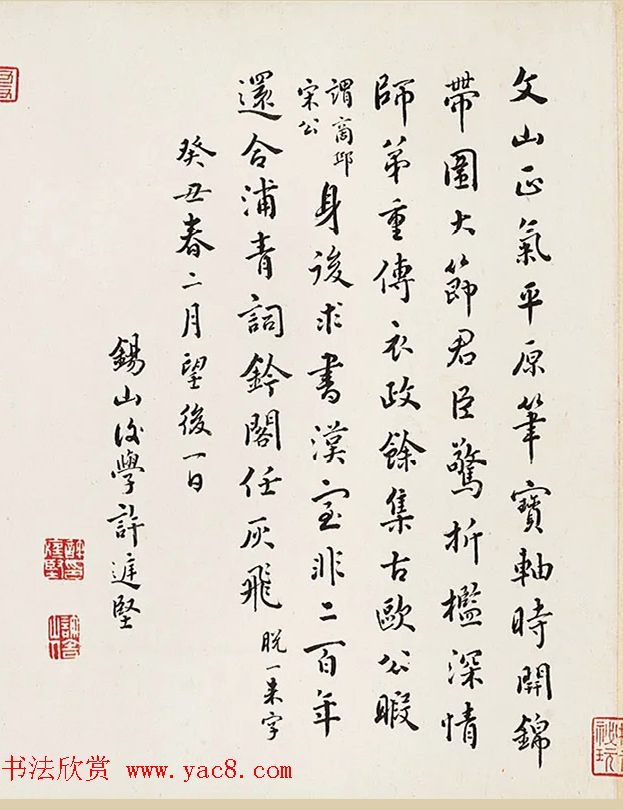 文山正氣平原筆寶軸時開錦
帶圍大節君臣驚折檻深情
師第重傳衣政餘集古歐公暇
謂商邱
宋公
身後求書漢室非二百年
還合浦青詞鈐閣任灰飛
脫一来字
癸丑春二月望後一日
錫山後學許庭堅
书法欣赏 www.yac8.com